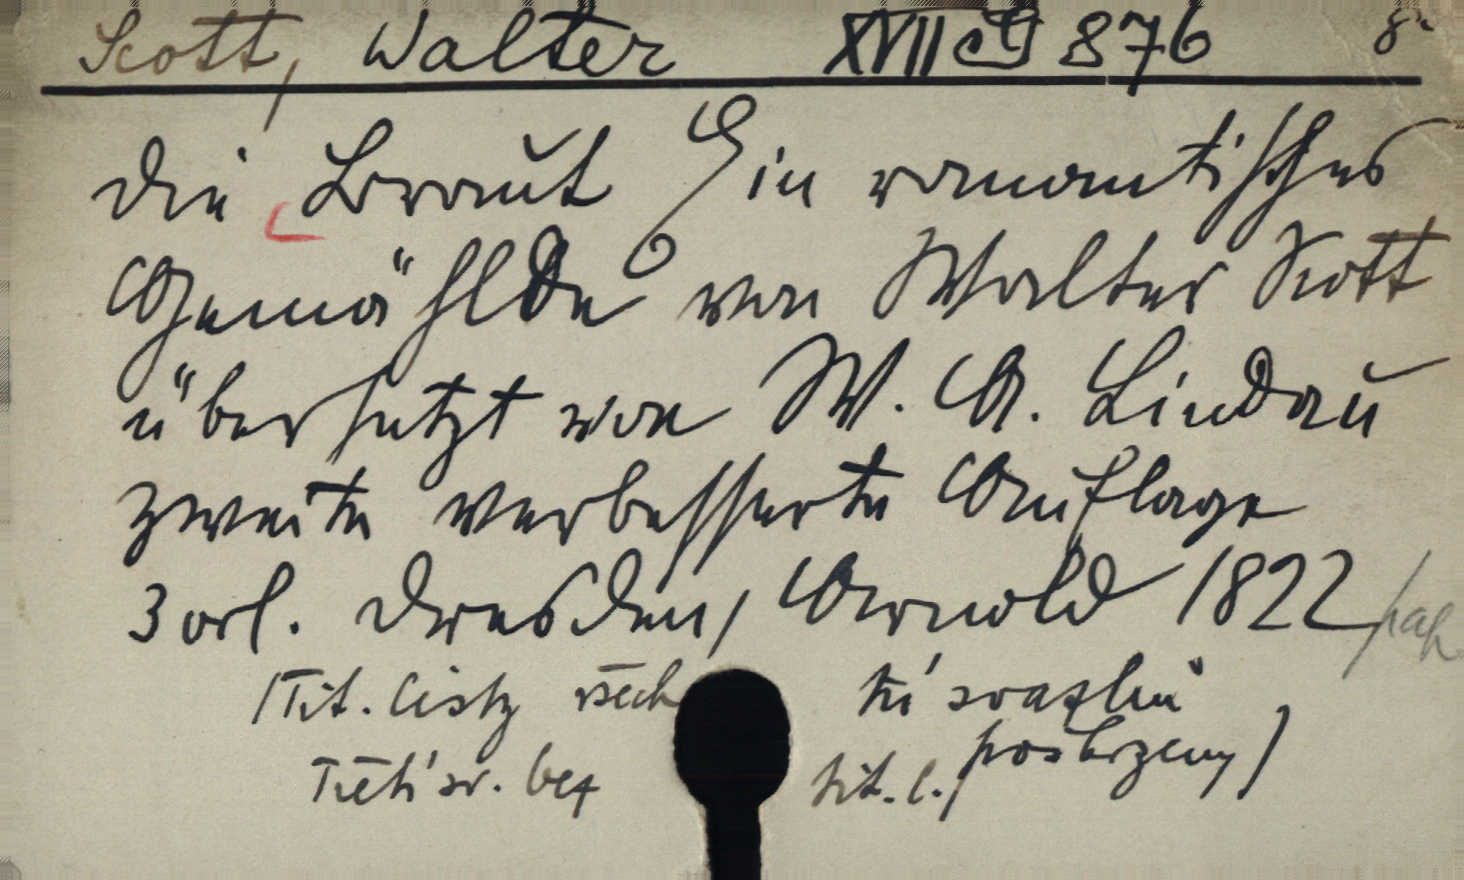 Scott, Walter XVII J 876 8°
Die Braut Ein romantisches
Gemählde von Walter Scott
übersetzt von W. A. Lindau
zweite verbesserte Auflage
3 vol. Dresden, Arnold 1822
/Tit. listy všech tří svazků
Třetí sv. bez tit. l., poškrzeny/